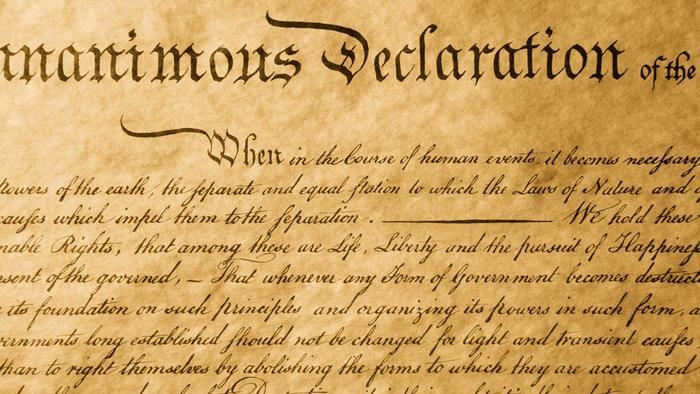 nnanimous Declaration of the
When in the Course of human events, it becomes necessary
Powers of the earth, the separate and equal station to which the Laws of Nature and
causes which impel them to the separation. ——— We hold these
nable Rights, that among these are Life, Liberty and the pursuit of Happiness
nsent of the governed, — That whenever any Form of Government becomes destructi
its foundation on such principles and organizing its powers in such form, a
vernments long established should not be changed for light and transient causes
than to right themselves by abolishing the forms to which they are accustomed